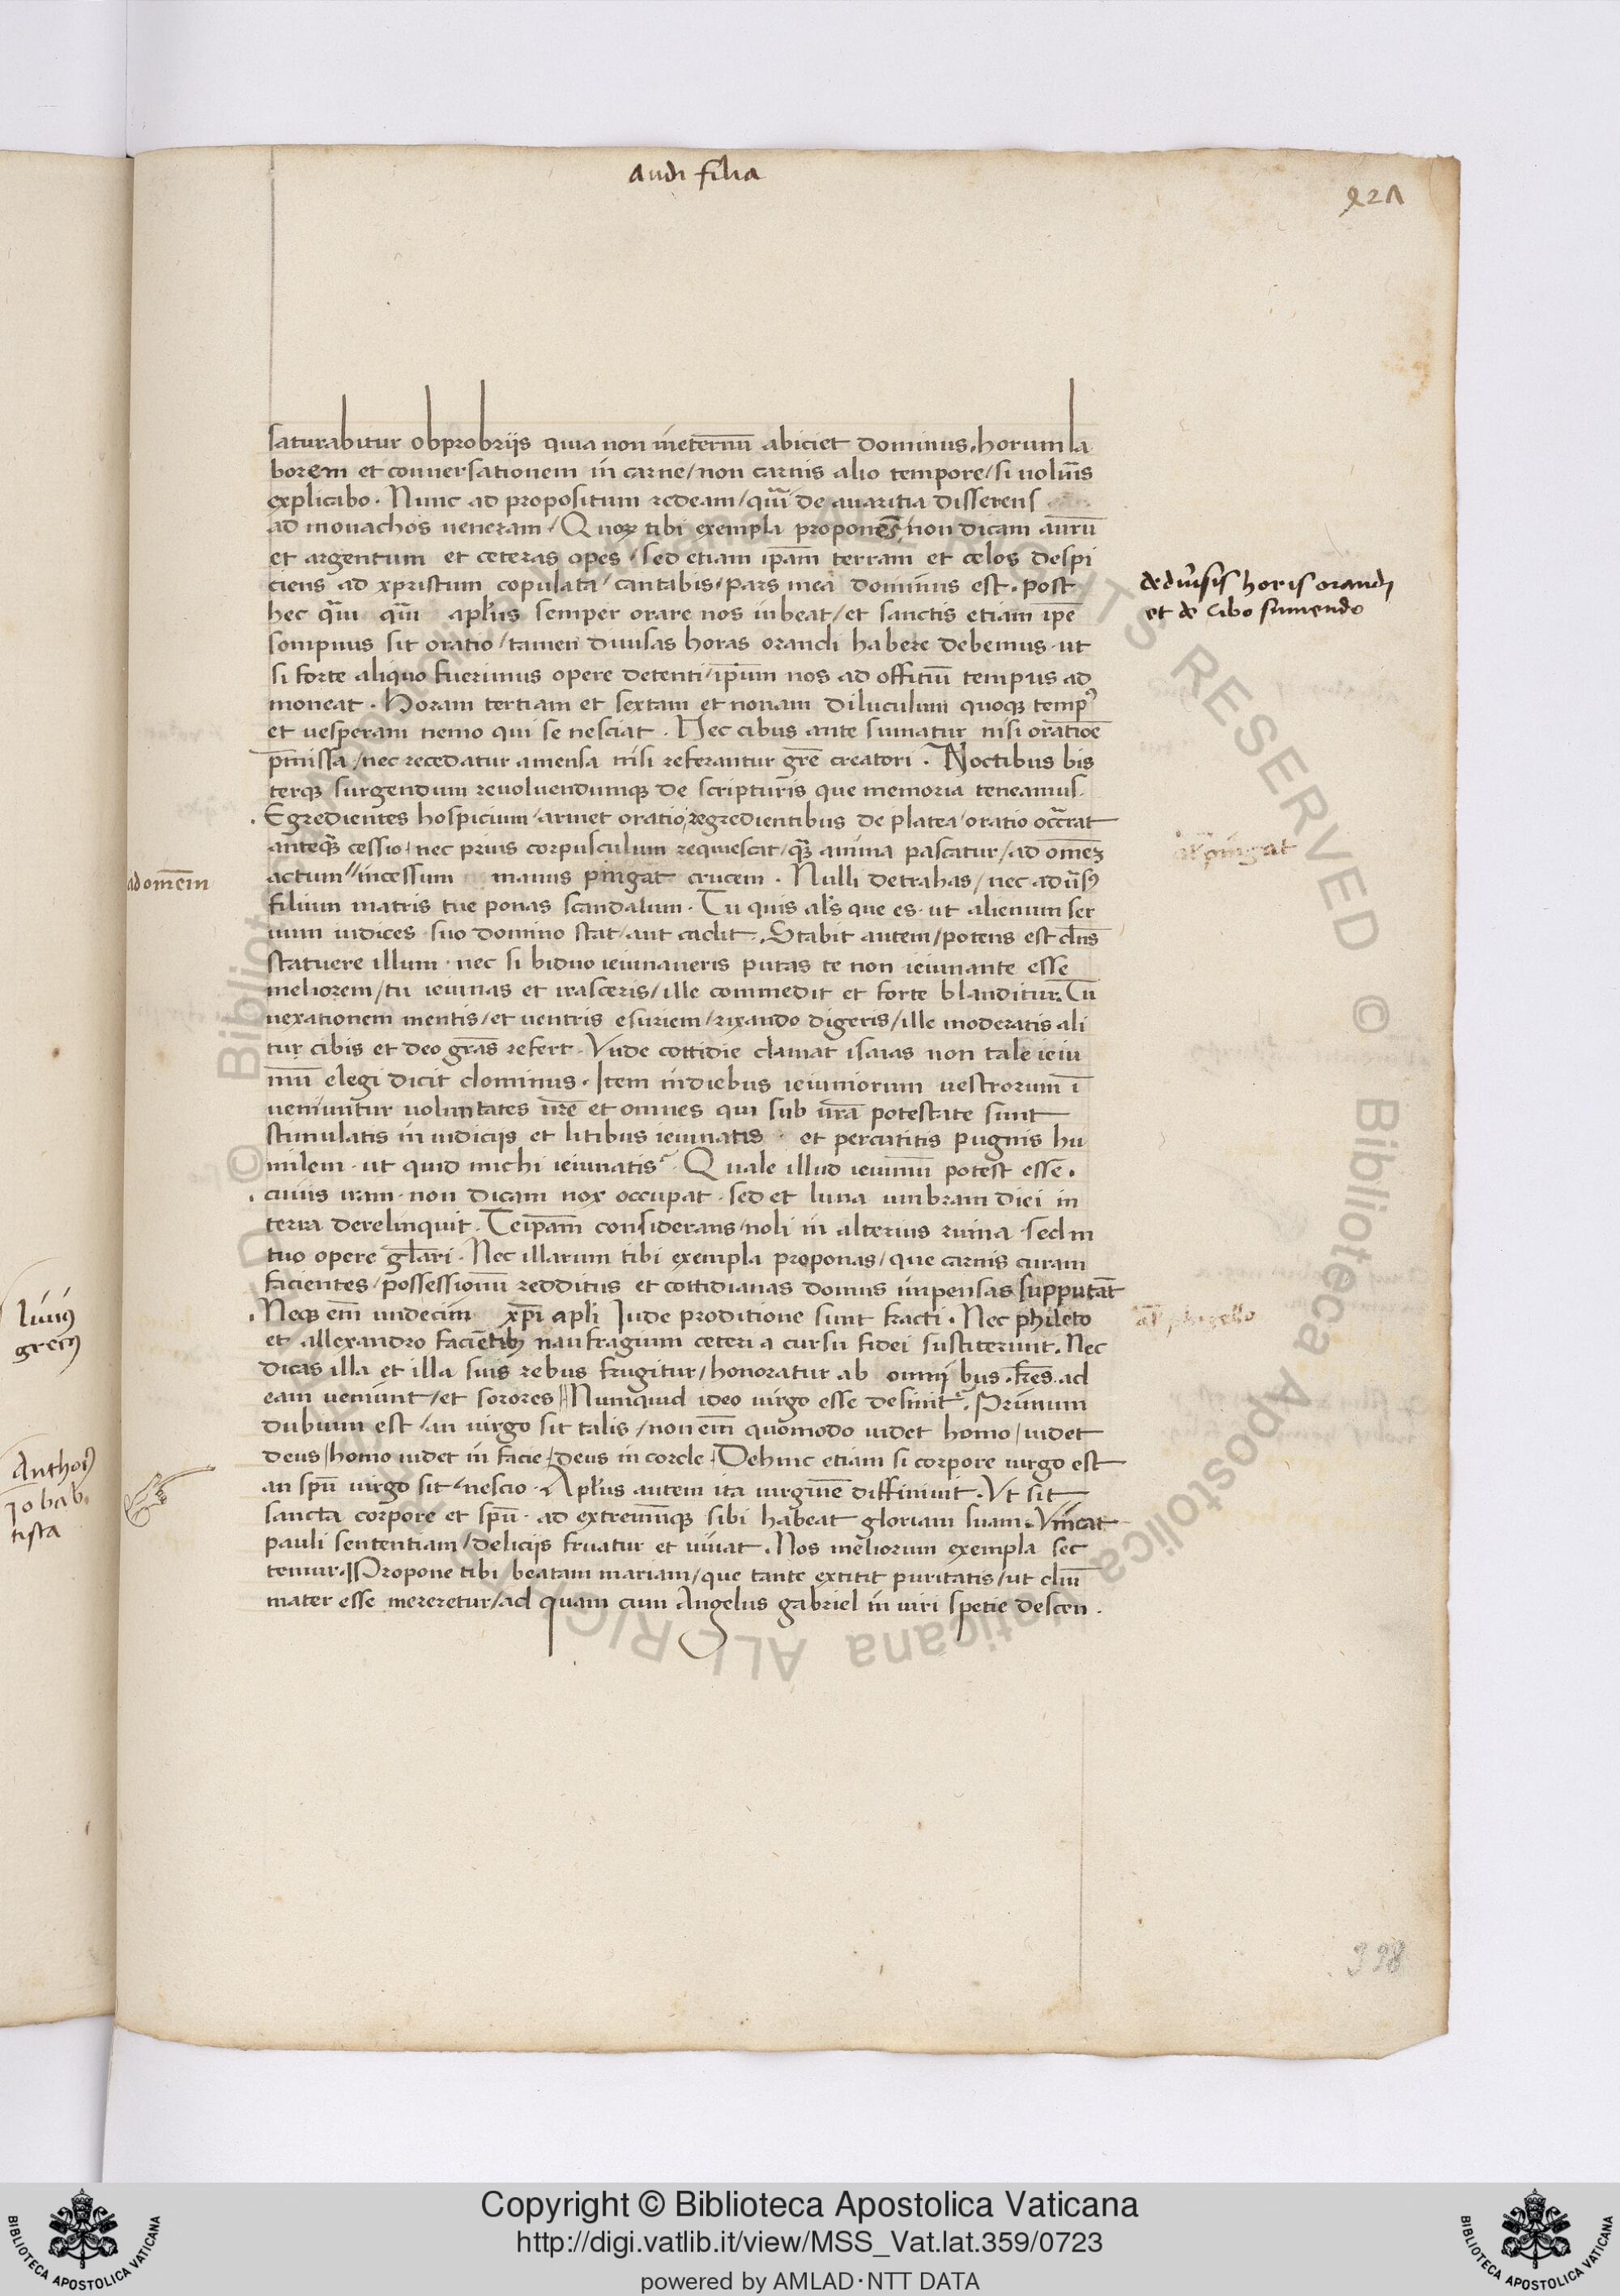 Audi filia
saturabitur obprobriis quia non ineternũ abiciet dominus. horum la
borem et conuersationem in carne / non carnis alio tempore / si uolũis
explicabo. Nunc ad propositum redeam / quĩ de auaritia disserens
ad monachos ueneram / Quoꝝ tibi exempla proponẽs / non dicam aurũ
et argentum et ceteras opes / sed etiam ip̃am terram et celos despi
ciens ad xpristum copulata / cantabis / pars mea dominus est. post
hec quãu quã apl̃us semper orare nos iubeat / et sanctis etiam ip̃e
sompnus sit oratio / tamen diuisas horas orandi habere debemus. ut
si forte aliquo fuerimus opere detenti / ip̃um nos ad offitiũ tempus ad
moneat. Horam tertiam et sextam et nonam diluculum quoqꝫ tempꝰ
et uesperam nemo qui se nesciat. Nec cibus ante sumatur nisi oratioẽ
p̃missa / nec recedatur amensa nisi referantur gr̃e creatori. Noctibus bis
terqꝫ surgendum reuoluendumqꝫ de scripturis que memoria teneamus.
Egredientes hospicium / armet oratio / regredientibus de platea / oratio occ̃rat
anteqꝫ cessio / nec prius corpusculum requiescat / qꝫ anima pascatur / ad om̃eꝫ
actum // incessum manus pingat crucem. Nulli detrahas / nec adũsꝰ
filium matris tue ponas scandalum. Tu quis al's que es. ut alienum ser
uum iudices suo domino stat / aut cadit. Stabit autem / potens est dñs
statuere illum. nec si biduo ieiunaueris putas te non ieiunante esse
meliorem / tu ieiunas et irasceris / ille commedit et forte blanditur. Tu
uexationem mentis / et uentris esuriem / rixando digeris / ille moderatis ali
tur cibis et deo gr̃as refert. Vnde cottidie clamat isaias non tale ieiu
niũ elegi dicit dominus. Item indiebus ieiuniorum uestrorum ĩ
ueniuntur uoluntates ur̃e et omnes qui sub ur̃a potestate sunt
stimulatis in iudiciis et litibus ieiunatis. et percutitis pugnis hu
milem. ut quid michi ieiunatis? Quale illud ieiuniũ potest esse.
cuius iram. non dicam nox occupat. sed et luna umbram diei in
terra derelinquit. Teip̃am considerans / noli in alterius ruina. sed in
tuo opere gl̃ari. Nec illarum tibi exempla proponas / que carnis curam
facientes / possessionũ redditus et cottidianas domus impensas supputãt
Neqꝫ em̃ undecim xp̃i apl̃i Iude proditione sunt fracti. Nec phileto
et allexandro faciẽtibꝫ naufragium ceteri a cursu fidei sustiterunt. Nec
dicas illa et illa suis rebus frugitur / honoratur ab omnibus. fr̃es ad
eam ueniunt / et sorores // Nunquid ideo uirgo esse desinit? Primum
dubium est / an uirgo sit talis / non em̃ quomodo uidet homo / uidet
deus / homo uidet in facie / deus in corde / Dehinc etiam si corpore uirgo est
an sp̃u uirgo sit / nescio. Apl̃us autem ita uirginẽ diffiniuit. Vt sit
sancta corpore et sp̃u. ad extremũqꝫ sibi habeat gloriam suam. Vincat
pauli sententiam / deliciis fruatur et uiuat. Nos meliorum exempla sec
temur. Propone tibi beatam mariam / que tante extitit puritatis / ut dñi
mater esse mereretur / ad quam cum Angelus gabriel in uiri spetie descen.
de diu̾sis horis orandi
et de cibo sumendo
al' pingat
ad om̃em
al' phigello
Anthoꝰ
Jo bab
tista
398
Copyright © Biblioteca Apostolica Vaticana
http://digi.vatlib.it/view/MSS_Vat.lat.359/0723
powered by AMLAD·NTT DATA
BIBLIOTECA APOSTOLICA VATICANA
BIBLIOTECA APOSTOLICA VATICANA